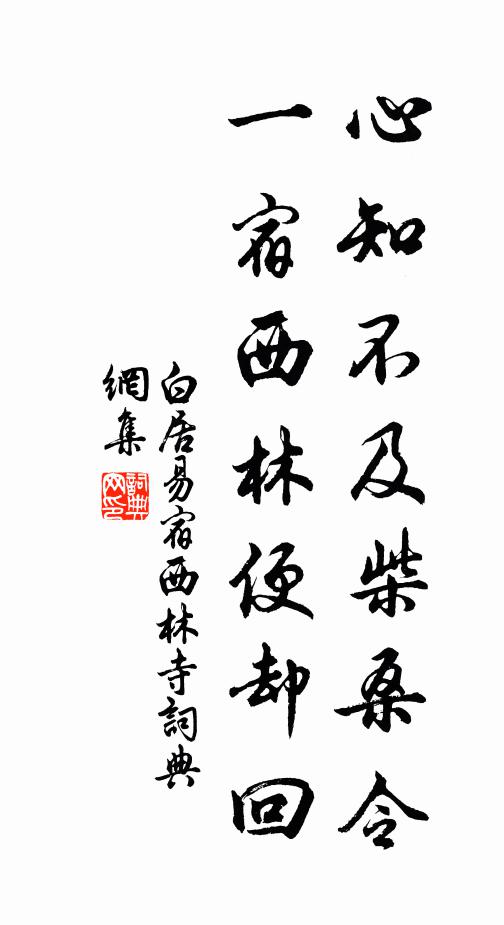 心知不及柴桑令
一宿西林便却回
白居易宿西林寺詞典
網集
詞典网印